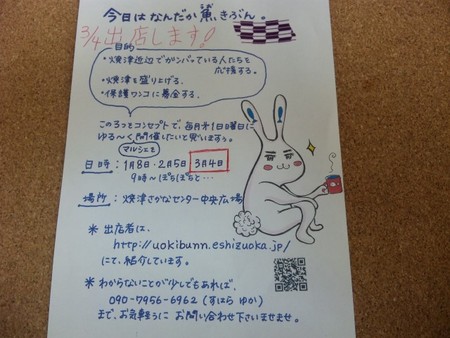 今日はなんだか魚、きぶん。
3/4出店します!
目的
・焼津近辺でガンバっている人たちを
応援する。
・焼津を盛り上げる。
・保護ワンコに募金する。
この3つをコンセプトで、毎月第1日曜日に
ゆる〜く開催したいと思いますぅ。
マルシェを
日時:1月8日・2月5日 3月4日
9時〜ぼちぼちと…
場所:焼津さかなセンター中央広場
※ 出店者は、
http://uokibunn.eshizuoka.jp/
にて、紹介しています。
※ わからないことが少しでもあれば、
090-7956-6962(すはら ゆか)
まで、お気軽うに お問い合わせ下さいませませ。